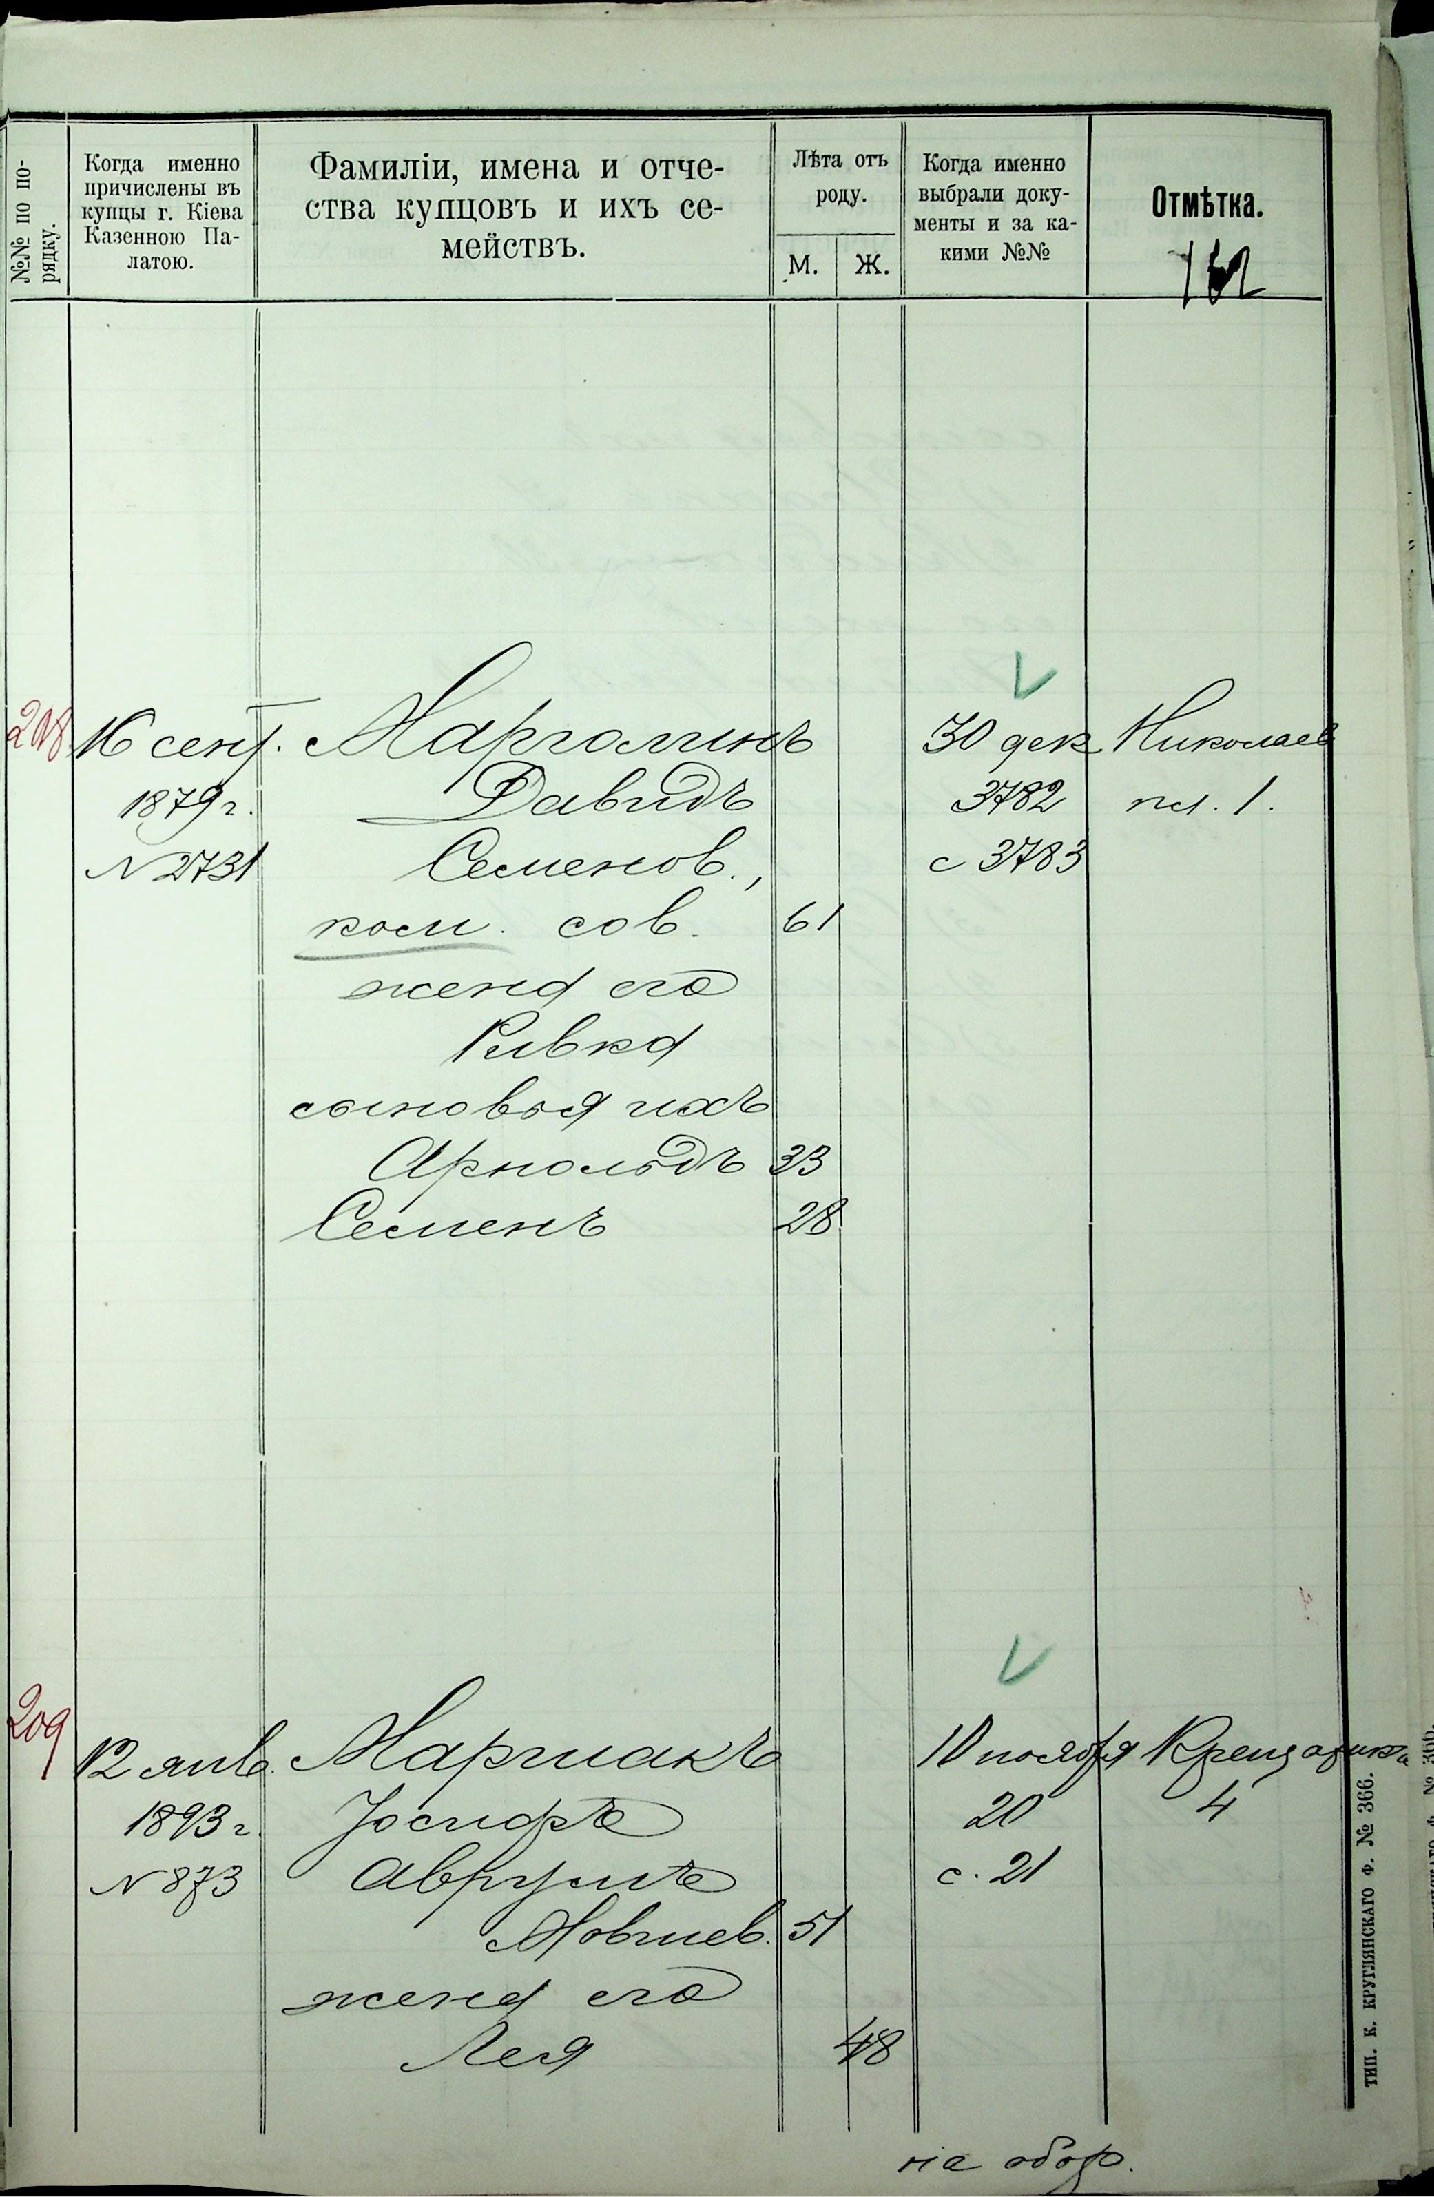 №№ по по-
рядку.
Когда именно
причислены въ
купцы г. Кіева
Казенною Па-
латою.
Фамиліи, имена и отче-
ства купцовъ и ихъ се-
мействъ.
Лѣта отъ
роду.
М. Ж.
Когда именно
выбрали доку-
менты и за ка-
кими №№
Отмѣтка.
208 16 сент. Марголинъ 30 дек Николаев
1879 г. Давидъ 3782 пл. 1.
N 2731 Семенов., с 3783
ком. сов. 61
жена его
Ривка
сыновья ихъ
Арнольдъ 33
Семенъ 28
209 12 янв. Маршакъ 10 ноября Крещатикъ
1893 г. Іосифъ 20 4
N 873 Аврумъ с. 21
Мовшев. 51
жена его
Лея 48
на обор.
ТИП. К. КРУГЛЯНСКАГО Ф. № 366.